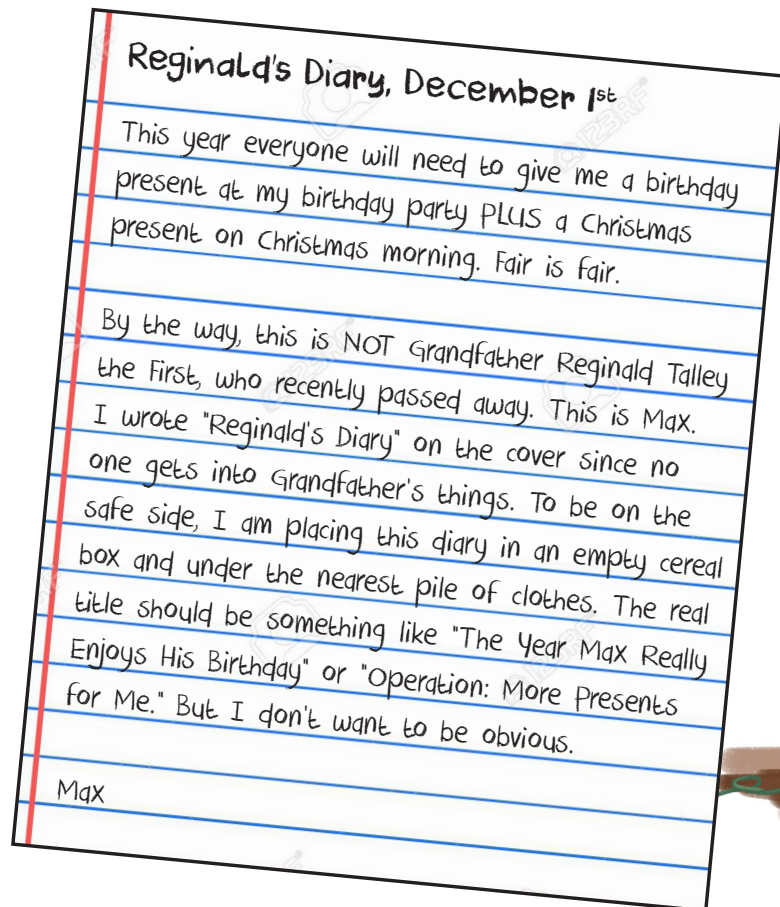 Reginald's Diary, December 1st
This year everyone will need to give me a birthday
present at my birthday party PLUS a Christmas
present on Christmas morning. Fair is fair.
By the way, this is NOT Grandfather Reginald Talley
the First, who recently passed away. This is Max.
I wrote "Reginald's Diary" on the cover since no
one gets into Grandfather's things. To be on the
safe side, I am placing this diary in an empty cereal
box and under the nearest pile of clothes. The real
title should be something like "The Year Max Really
Enjoys His Birthday" or "Operation: More Presents
for Me." But I don't want to be obvious.
Max